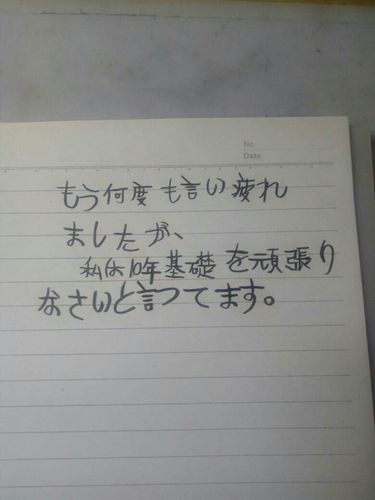 No.
Date
もう何度も言い疲れ
ましたが、
私は10年基礎を頑張り
なさいと言つてます。